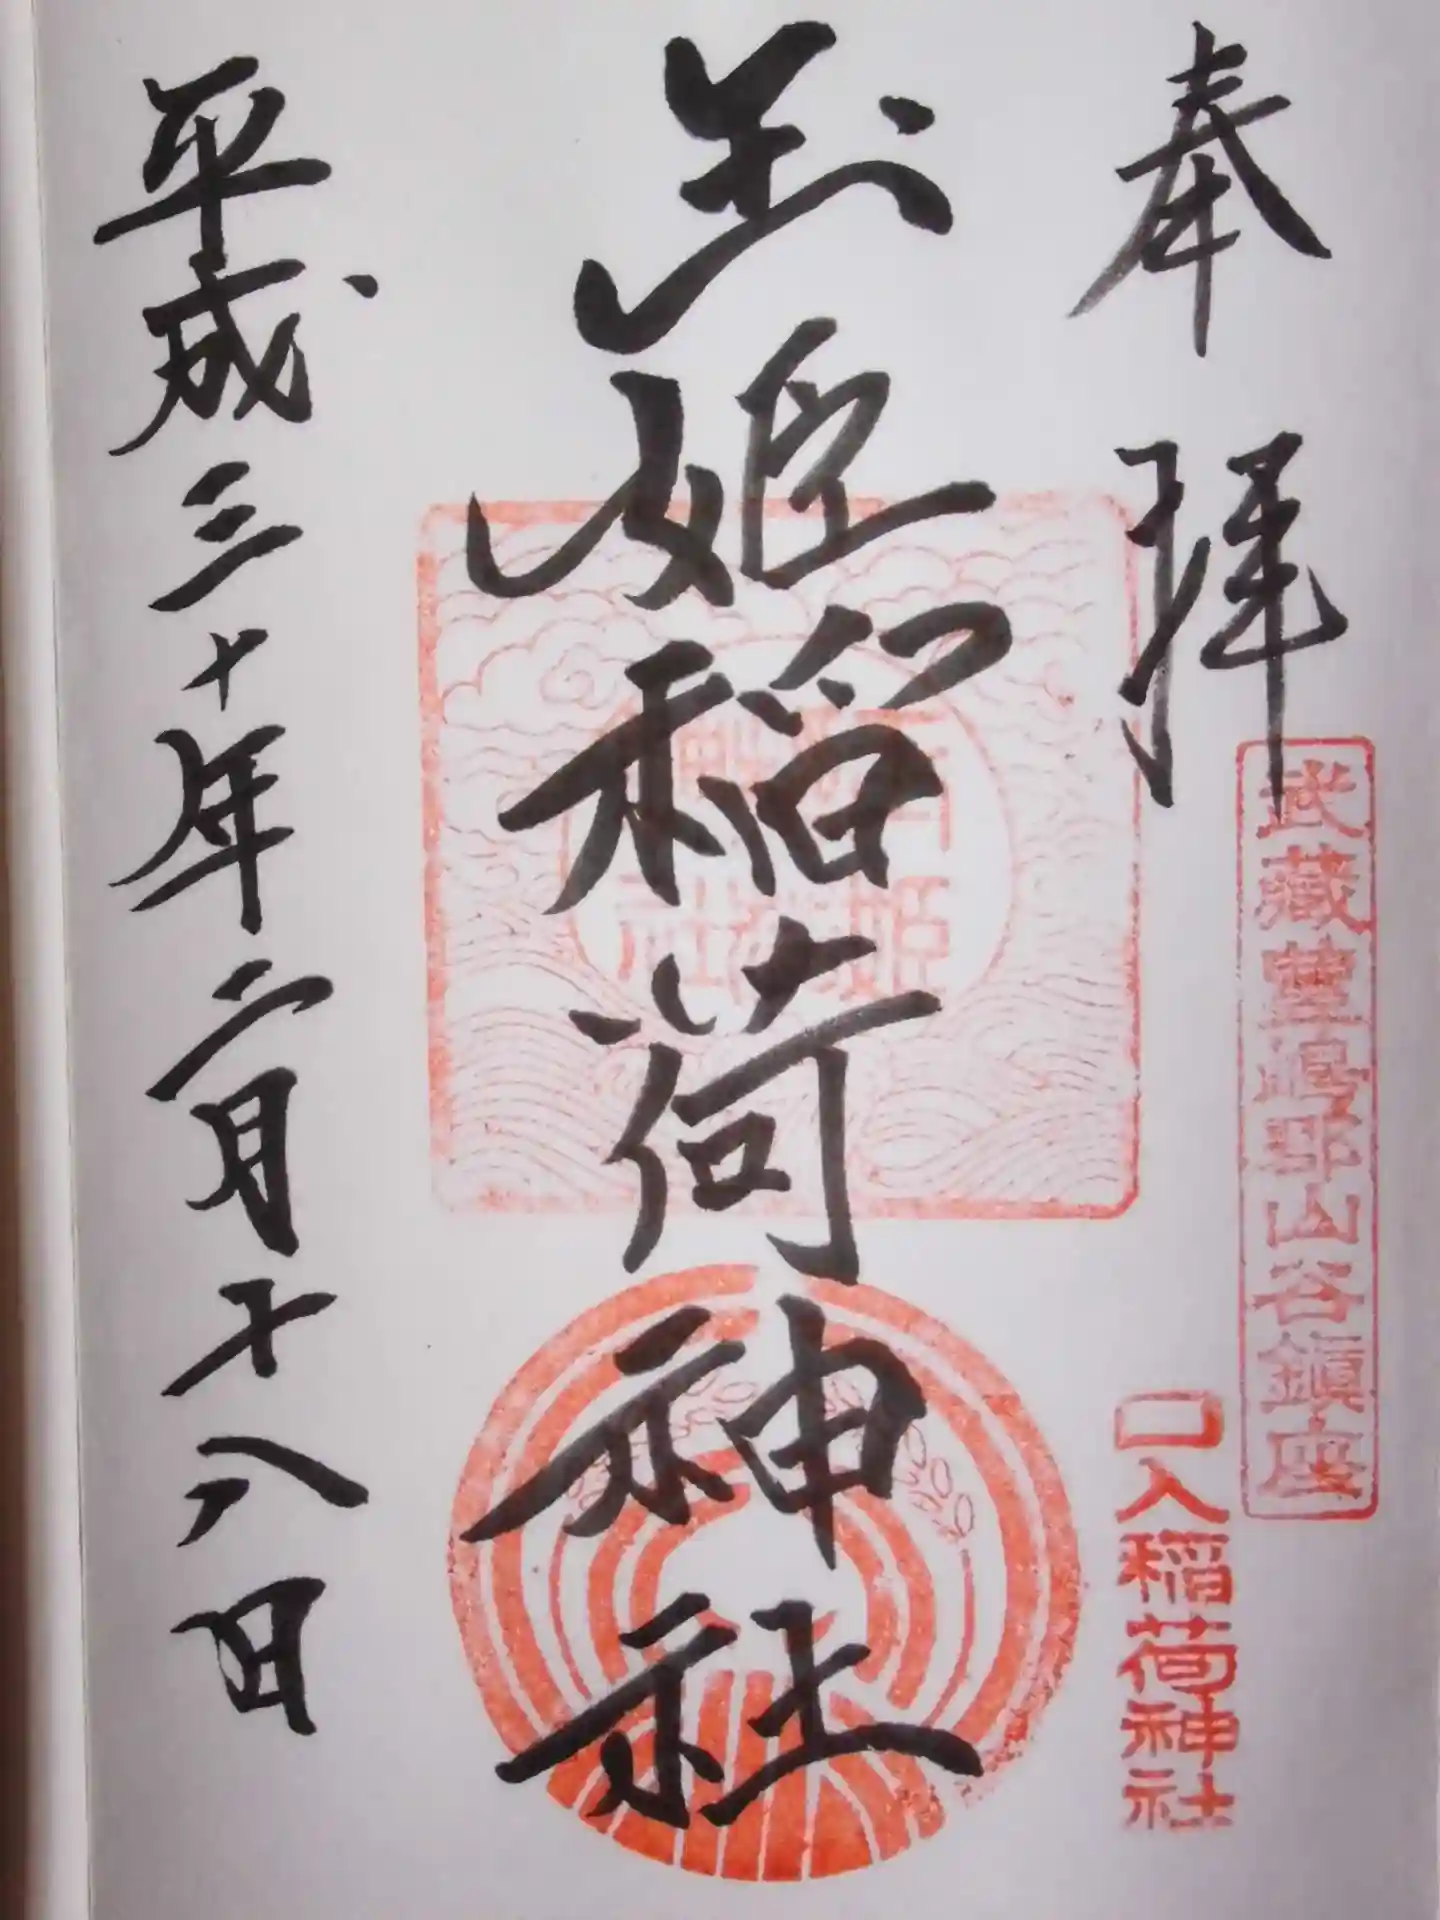 奉拝
武蔵豊嶋郡山谷鎮座
口入稲荷神社
玉姫稲荷神社
平成三十年二月十八日